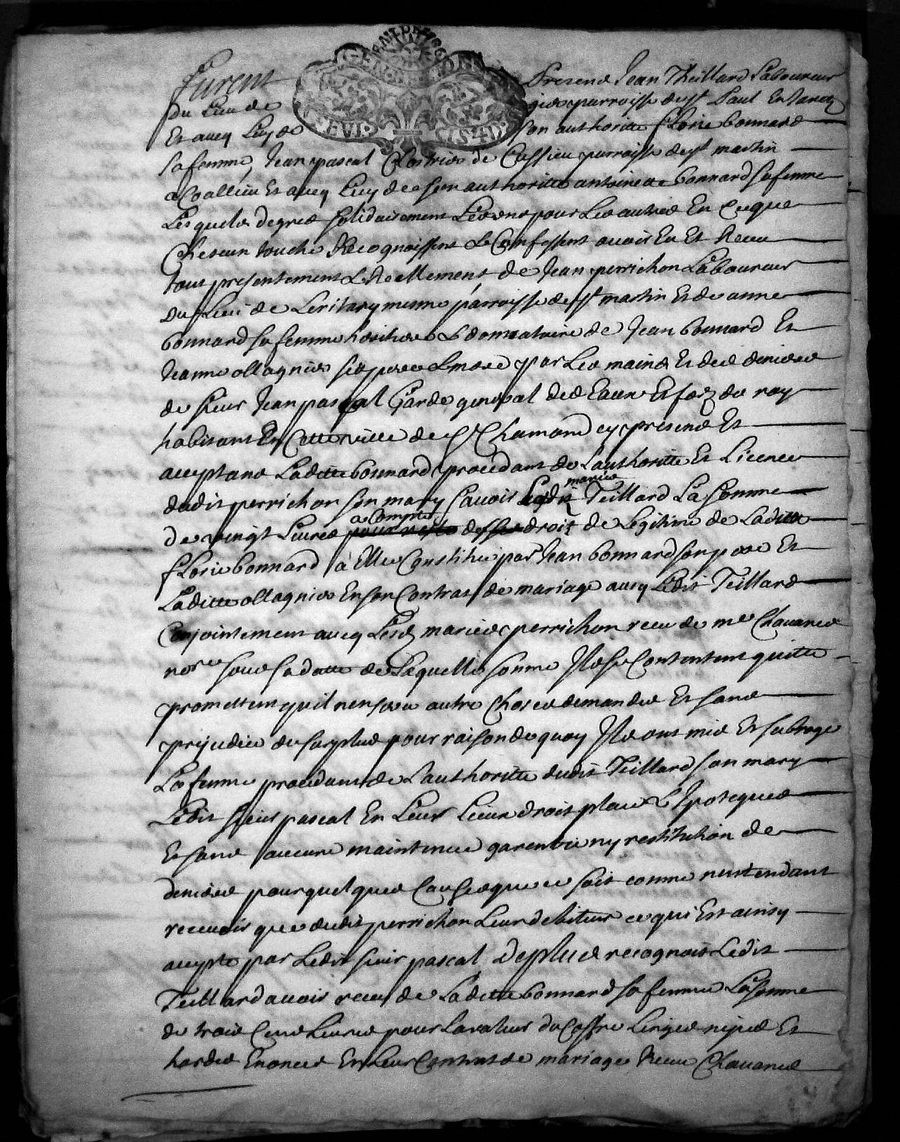 Furent present Jean Theillard Laboureur
du Lieu de parroisse de st Paul En Jarez
Et avecq Luy de son authorité florie bonnard
sa femme, Jean pascal de Cussieu parroisse de st martin
a Coallieu Et avecq Luy de son authoritte antoinette bonnard sa femme
Lesquels de gred solidairement Les uns pour Les autres En ce que
Chescun touche Recognoissent & Confessent avoir Eu Et Receu
tout presentement & Reellement de Jean perrichon Laboureur
du Lieu de mesme parroisse de st martin Et de anne
bonnard sa femme heritiere & donnataire de Jean bonnard Et
Jeanne ollagnier ses pere & mere par Les mains Et des deniers
de sieur Jean pascal Garde general des Eaux Et forez du roy
habitant En Cette ville de st Chamond cy present Et
aceptant Laditte bonnard procedant de Lauthoritté Et Licence
dudit perrichon son mary scavoir Lesdits mariés Teillard La somme
de vingt Livres a Compte des droit de Legitime de Laditte
florie bonnard a Elle Constitué par Jean bonnard son pere Et
Laditte ollagnier En son Contrat de mariage avecq Ledit Teillard
Conjointement avecq Lesd mariés perrichon receu de me Chavanne
nore sous sa datte de Laquelle somme Ils se Contentent quitte
promettent qu'il n'en sera autre Chose demandée Et sans
prejudice du surplus pour raison de quoy Ils ont mis Et subrogé
La femme procedant de Lauthoritté dudit Teillard son mary
Ledit sieur pascal En Leurs Lieux droit place & Ipoteques
Et sans aucune maintenue garentie ny restitution de
deniers pour quelque Cause que ce soit comme nentendant
recevoir que dudit perrichon Leur debiteur ce qui Est ainsy
acepté par Ledit sieur pascal De plus recognoit Ledit
Teillard avoir receu de Laditte bonnard sa femme La somme
de trois Cent Livres pour La valeur du Coffre Linges nipes Et
hardes Enoncés En Leur Contrat de mariage receu Chavanne